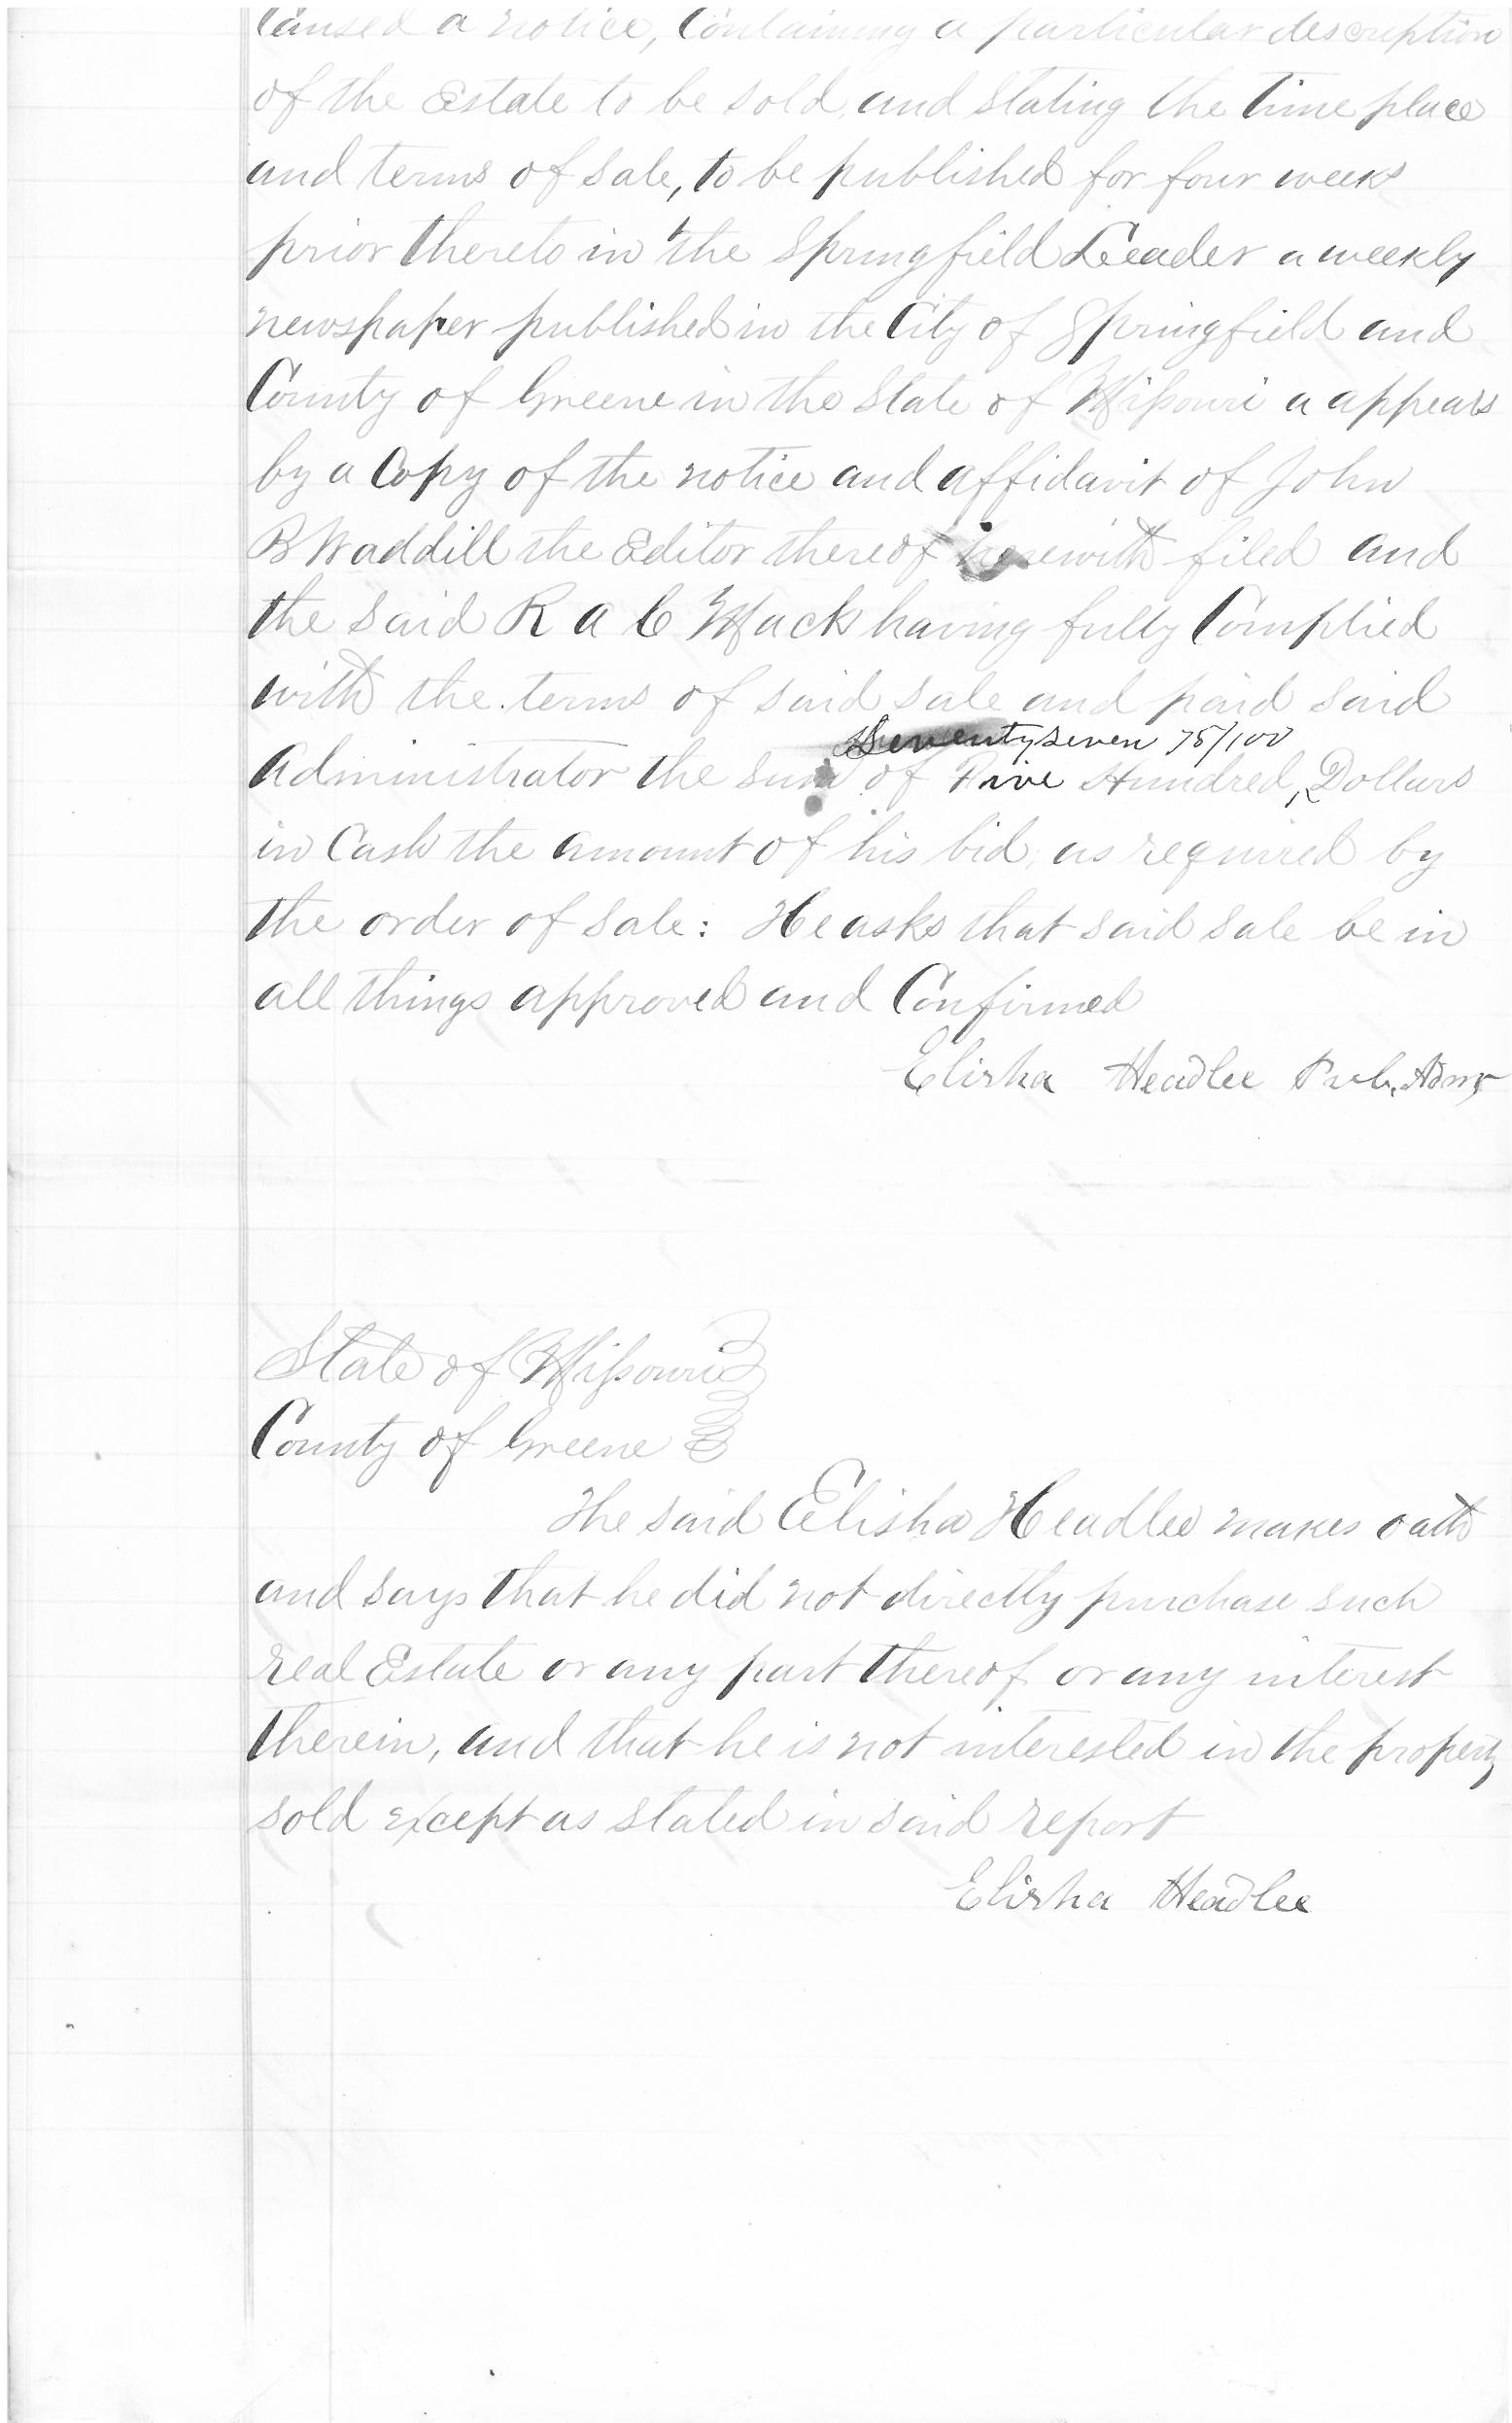 Caused a notice, Containing a particular description
of the Estate to be sold and Stating the time place
and terms of sale, to be published for four weeks
prior thereto in the Springfield Leader a weekly
newspaper published in the City of Springfield and
County of Greene in the State of Missouri a appears
by a Copy of the notice and affidavit of John
B Waddill the Editor thereof herewith filed and
the said R A C Mack having fully Complied
with the terms of said sale and paid said
Seventy seven 75/100
Administrator the sum of Five Hundred, Dollars
in Cash the amount of his bid, as required by
the order of sale: He asks that said sale be in
all things approved and Confirmed
Elisha Headlee Pub. Admr
State of Missouri
County of Greene
The said Elisha Headlee makes oath
and says that he did not directly purchase such
real Estate or any part thereof or any interest
therein, and that he is not interested in the property
sold except as stated in said report
Elisha Headlee